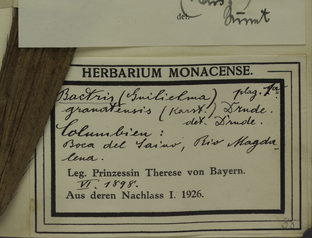 det.
HERBARIUM MONACENSE.
Bactris (Guilielma)
granatensis (Karst.) Drude.
det. Drude.
Columbien:
Boca del Saino, Rio Magda-
lena.
Leg. Prinzessin Therese von Bayern.
VI. 1898.
Aus deren Nachlass I. 1926.